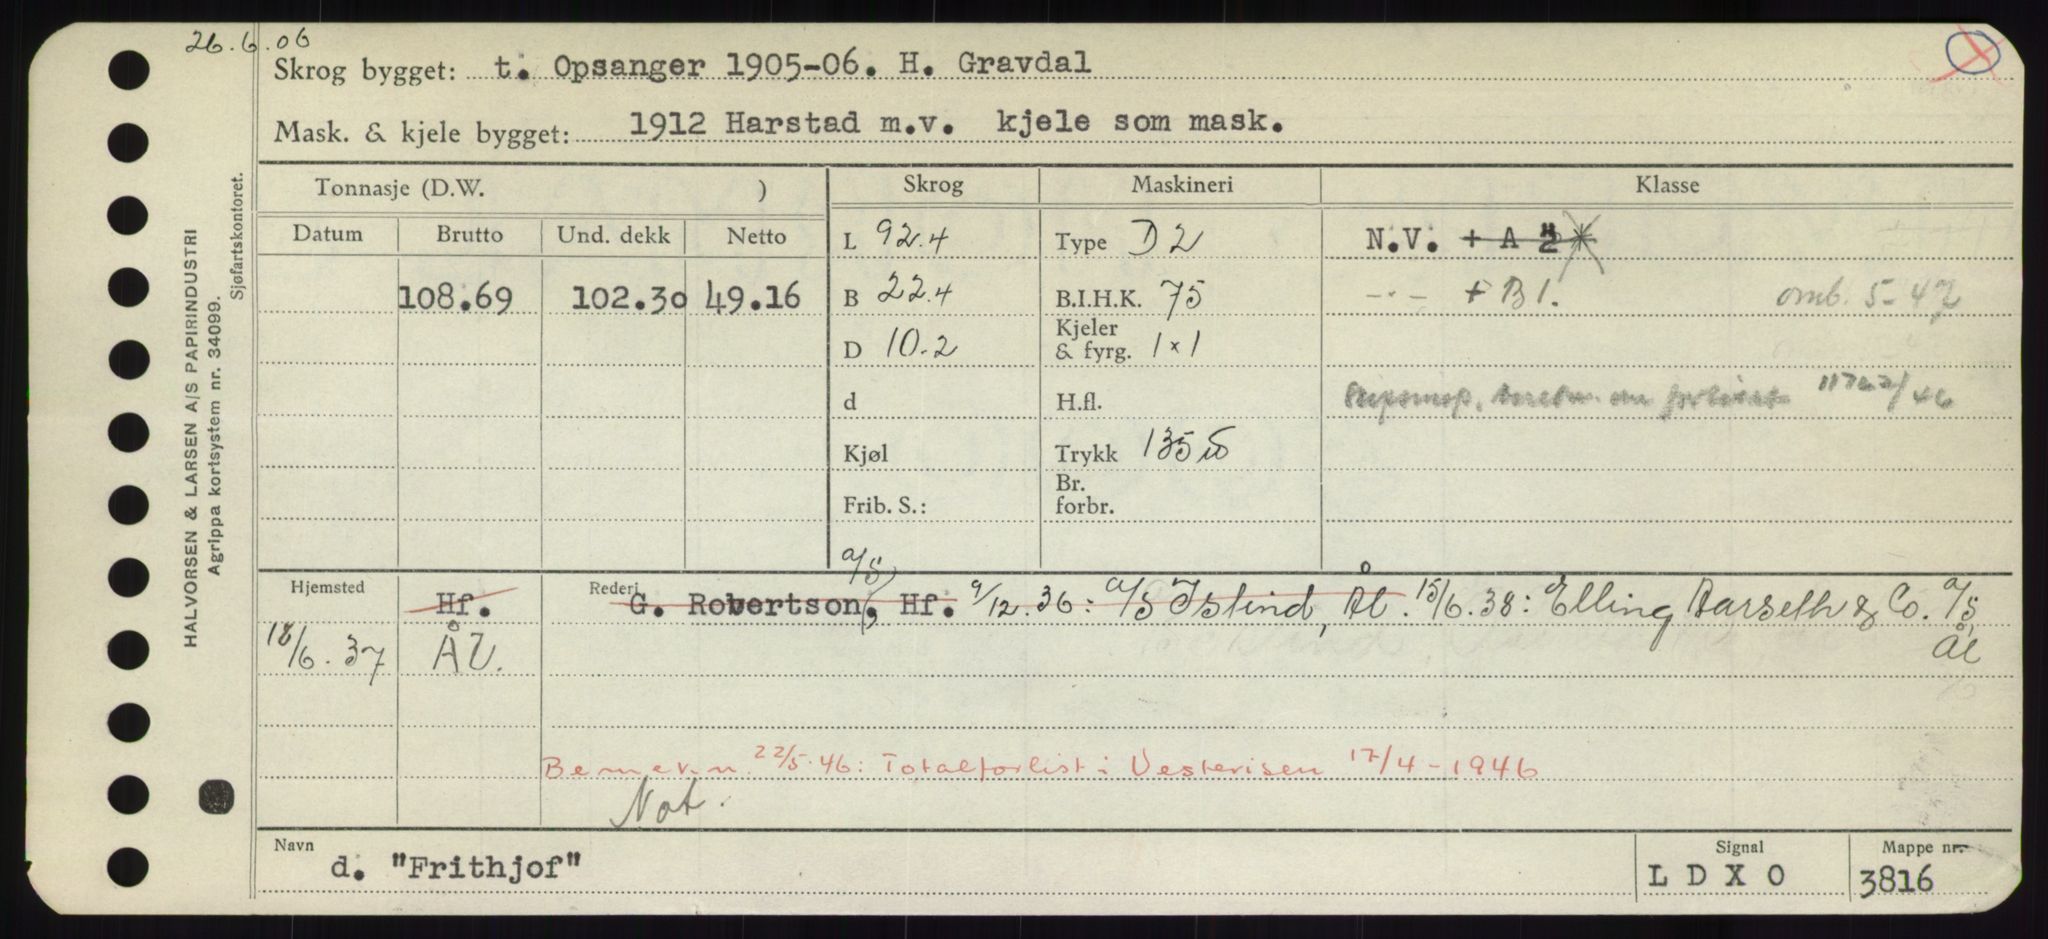 26.6.06
Skrog bygget: t. Opsanger 1905-06. H. Gravdal
Mask. & kjele bygget: 1912 Harstad m.v. kjele som mask.
HALVORSEN & LARSEN A/S PAPIRINDUSTRI
Agrippa kortsystem nr. 34099.
Sjøfartskontoret.
Tonnasje (D.W. )
Skrog
Maskineri
Klasse
Datum
Brutto
Und. dekk
Netto
108.69
102.30
49.16
L 92.4
B 22.4
D 10.2
d
Kjøl
Frib. S.:
Type D 2
B.I.H.K. 75
Kjeler
& fyrg. 1 x 1
H.fl.
Trykk 135
Br.
forbr.
N.V. + A 2
- " - + B 1. omb. 5-47
Hjemsted
Hf.
18/6.37 ÅL.
Rederi
G. Robertson, A/S, Hf. 9/12.36: A/S Isfind, Ål. 15/6.38: Elling Aarseth & Co. A/S,
Ål
22/5.46: Totalforlist i Vesterisen 17/4-1946
Not.
Navn
d. "Frithjof"
Signal
L D X O
Mappe nr.
3816